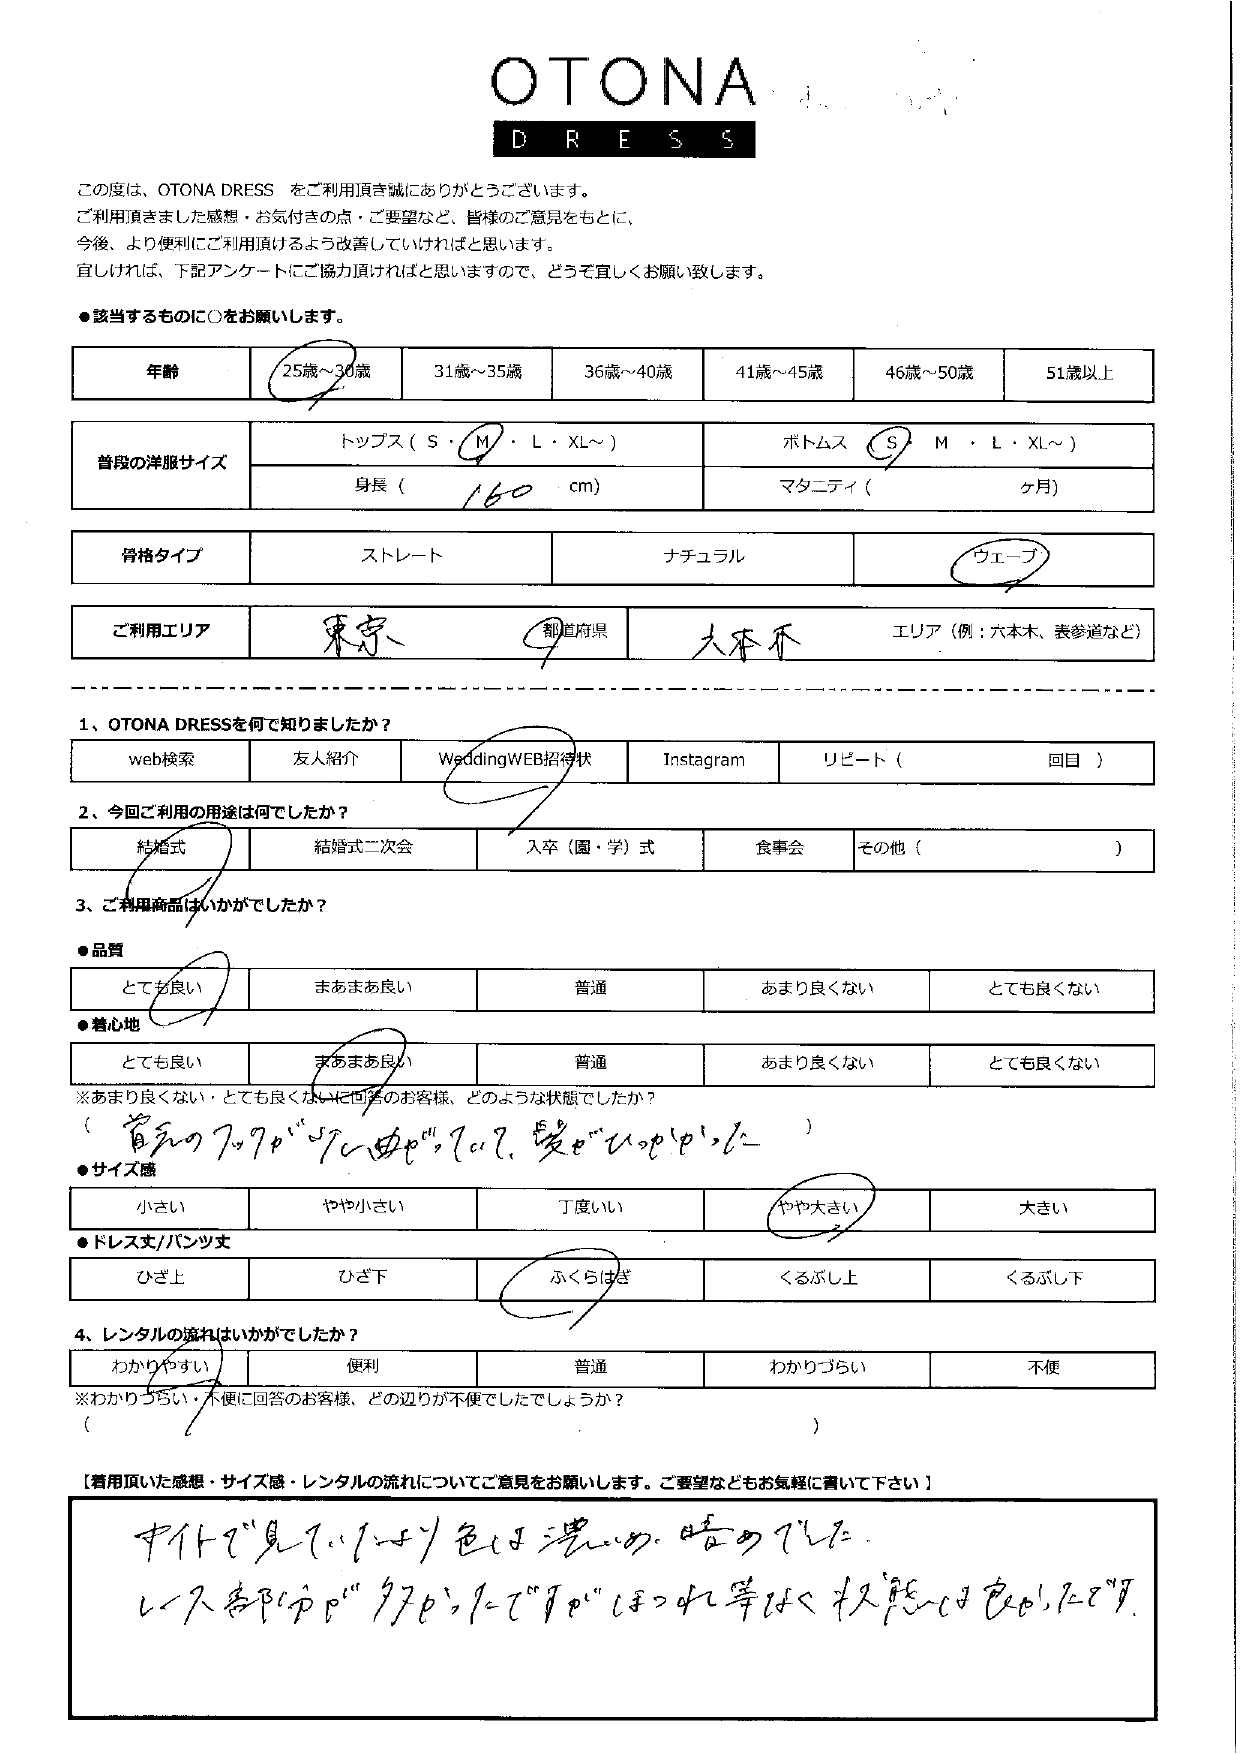 OTONA
DRESS
この度は、OTONA DRESS をご利用頂き誠にありがとうございます。
ご利用頂きました感想・お気付きの点・ご要望など、皆様のご意見をもとに、
今後、より便利にご利用頂けるよう改善していければと思います。
宜しければ、下記アンケートにご協力頂ければと思いますので、どうぞ宜しくお願い致します。
●該当するものに○をお願いします。
年齢 25歳～30歳 31歳～35歳 36歳～40歳 41歳～45歳 46歳～50歳 51歳以上
普段の洋服サイズ トップス ( S ・ M ・ L ・ XL～ ) ボトムス ( S ・ M ・ L ・ XL～ )
身長 ( 160 cm) マタニティ ( ヶ月)
骨格タイプ ストレート ナチュラル ウェーブ
ご利用エリア 東京 都道府県 六本木 エリア（例：六本木、表参道など）
1、OTONA DRESSを何で知りましたか？
web検索 友人紹介 WeddingWEB招待状 Instagram リピート（ 回目 ）
2、今回ご利用の用途は何でしたか？
結婚式 結婚式二次会 入卒（園・学）式 食事会 その他（ ）
3、ご利用商品はいかがでしたか？
●品質
とても良い まあまあ良い 普通 あまり良くない とても良くない
●着心地
とても良い まあまあ良い 普通 あまり良くない とても良くない
※あまり良くない・とても良くないに回答のお客様、どのような状態でしたか？
( 首元のフックが 曲がっていて、髪がひっかかった )
●サイズ感
小さい やや小さい 丁度いい やや大きい 大きい
●ドレス丈/パンツ丈
ひざ上 ひざ下 ふくらはぎ くるぶし上 くるぶし下
4、レンタルの流れはいかがでしたか？
わかりやすい 便利 普通 わかりづらい 不便
※わかりづらい・不便に回答のお客様、どの辺りが不便でしたでしょうか？
( )
【着用頂いた感想・サイズ感・レンタルの流れについてご意見をお願いします。ご要望などもお気軽に書いて下さい 】
サイトで見ていたより色は濃いめ、暗めでした.
レース部分が 硬かったですがほつれ等はなく状態は良かったです.